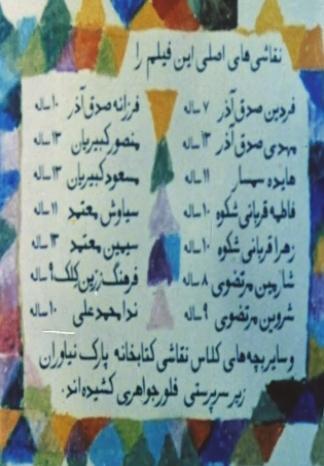 نقاشی‌های اصلی این فیلم را
فردین صدق آذر ۷ ساله
مهدی صدق آذر ۱۳ ساله
هایده سمسار ۱۱ ساله
فاطمه قربانی شکوه ۱۰ ساله
زهرا قربانی شکوه ۱۰ ساله
شارمین مرتضوی ۸ ساله
شروین مرتضوی ۹ ساله
فرزانه صدق آذر ۱۰ ساله
منصور کبیریان ۱۳ ساله
مسعود کبیریان ۱۳ ساله
سیاوش معتمد ۱۱ ساله
سیمین معتمد ۱۳ ساله
فرهنگ زرین کلک ۹ ساله
ندا محمد علی ۱۰ ساله
و سایر بچه‌های کلاس نقاشی کتابخانه پارک نیاوران
زیر سرپرستی فلور جواهری کشیده‌اند.